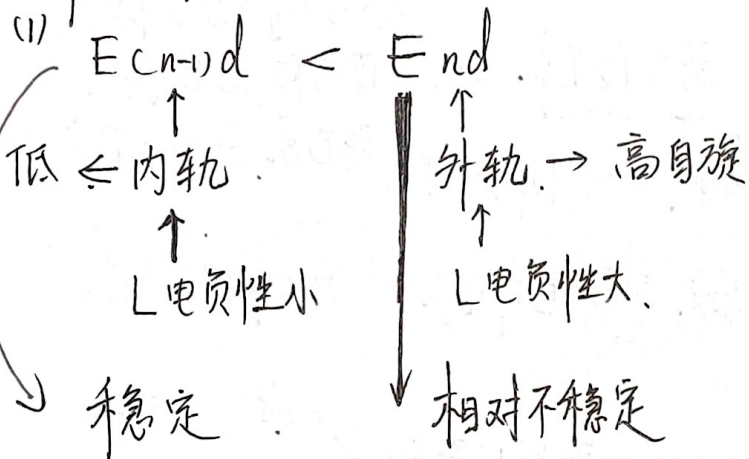 (1)
E(n-1)d < End.
↑ ↑
低 ← 内轨. 外轨. → 高自旋
↑ ↑
L电负性小 L电负性大、
稳定. 相对不稳定